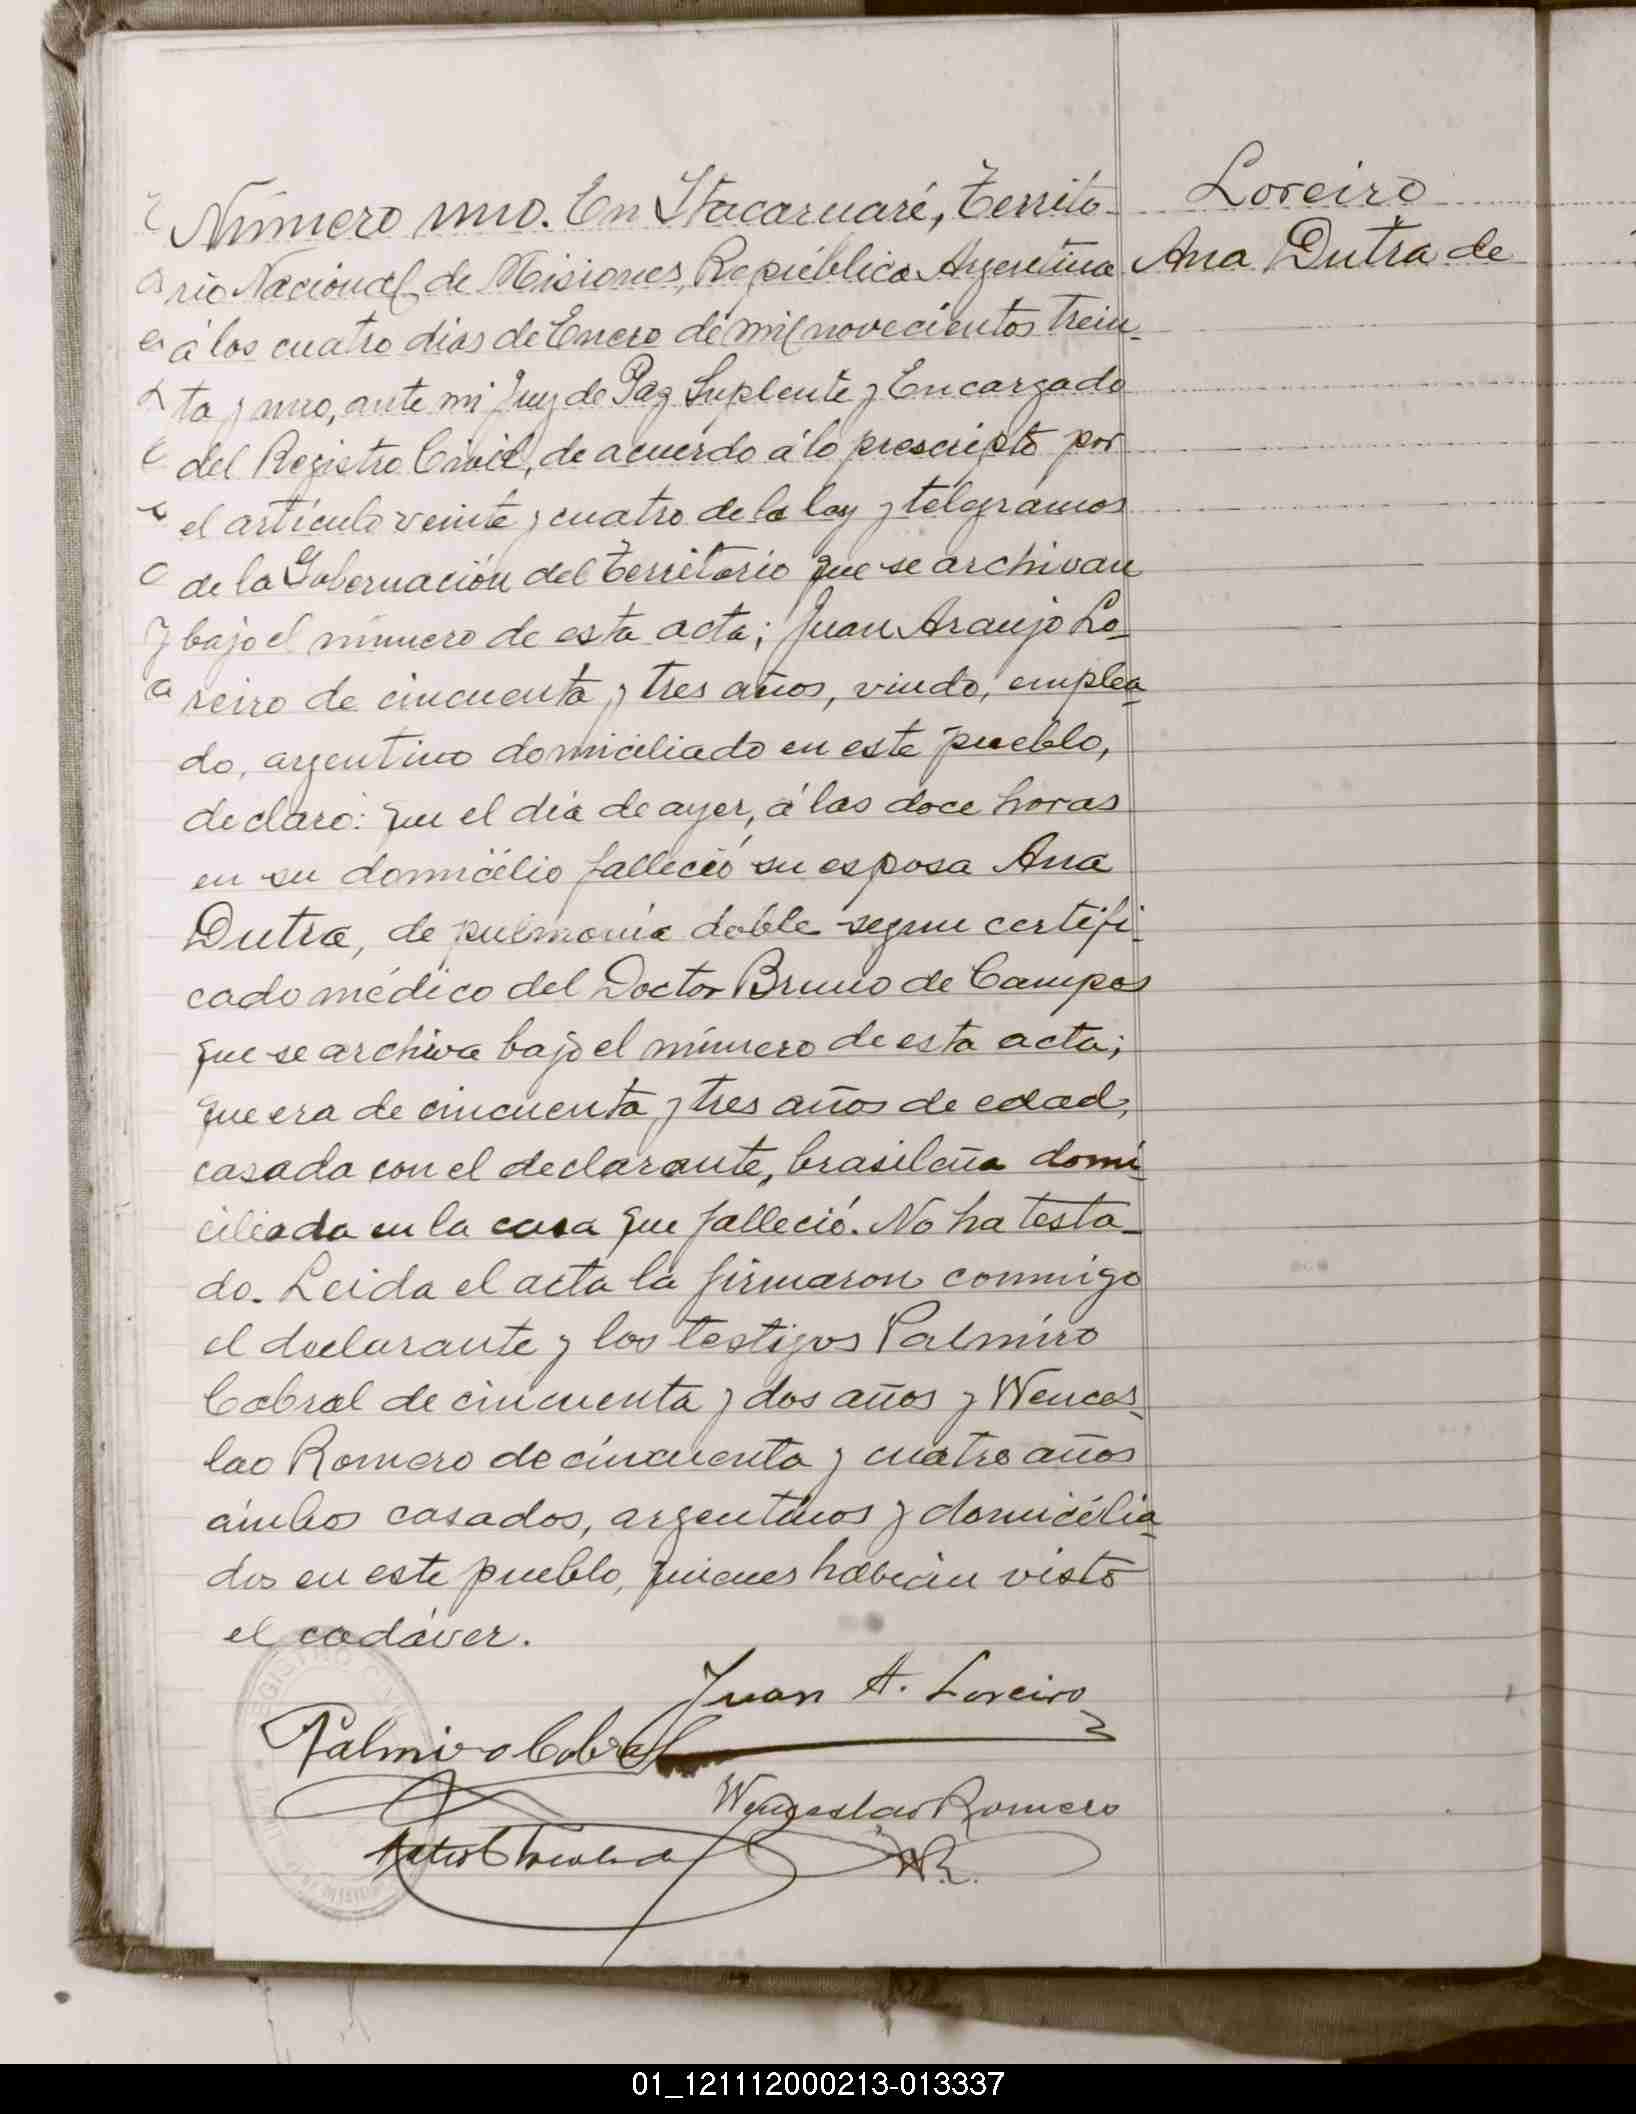 Loreiro
Ana Dutra de
Número uno. En Itacaruaré, Territo-
rio Nacional de Misiones, República Argentina
á los cuatro dias de Enero de mil novecientos trein-
ta y uno, ante mi Juez de Paz Suplente y Encargado
del Registro Civil, de acuerdo á lo prescripto por
el artículo veinte y cuatro de la ley y telegramas
de la Gobernación del Territorio que se archivan
bajo el número de esta acta; Juan Araujo Lo-
reiro de cincuenta y tres años, viudo, emplea-
do, argentino domiciliado en este pueblo,
declaró: que el dia de ayer, á las doce horas
en su domicilio falleció su esposa Ana
Dutra, de pulmonía doble segun certifi-
cado médico del Doctor Bruno de Campos
que se archiva bajo el número de esta acta;
que era de cincuenta y tres años de edad,
casada con el declarante, brasileña domi-
ciliada en la casa que falleció. No ha testa-
do. Leida el acta la firmaron conmigo
el declarante y los testigos Palmiro
Cabral de cincuenta y dos años y Wences-
lao Romero de cincuenta y cuatro años
ámbos casados, argentinos y domicilia-
dos en este pueblo, quienes habían visto
el cadáver.
Juan A. Loreiro
Palmiro Cabral
Wenzeslao Romero
W.R.
REGISTRO CIVIL
01_121112000213-013337